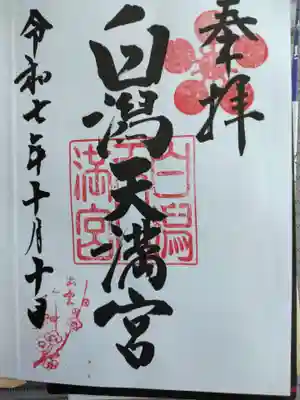 奉拝
白潟天満宮
令和七年十月十日
白潟天満宮